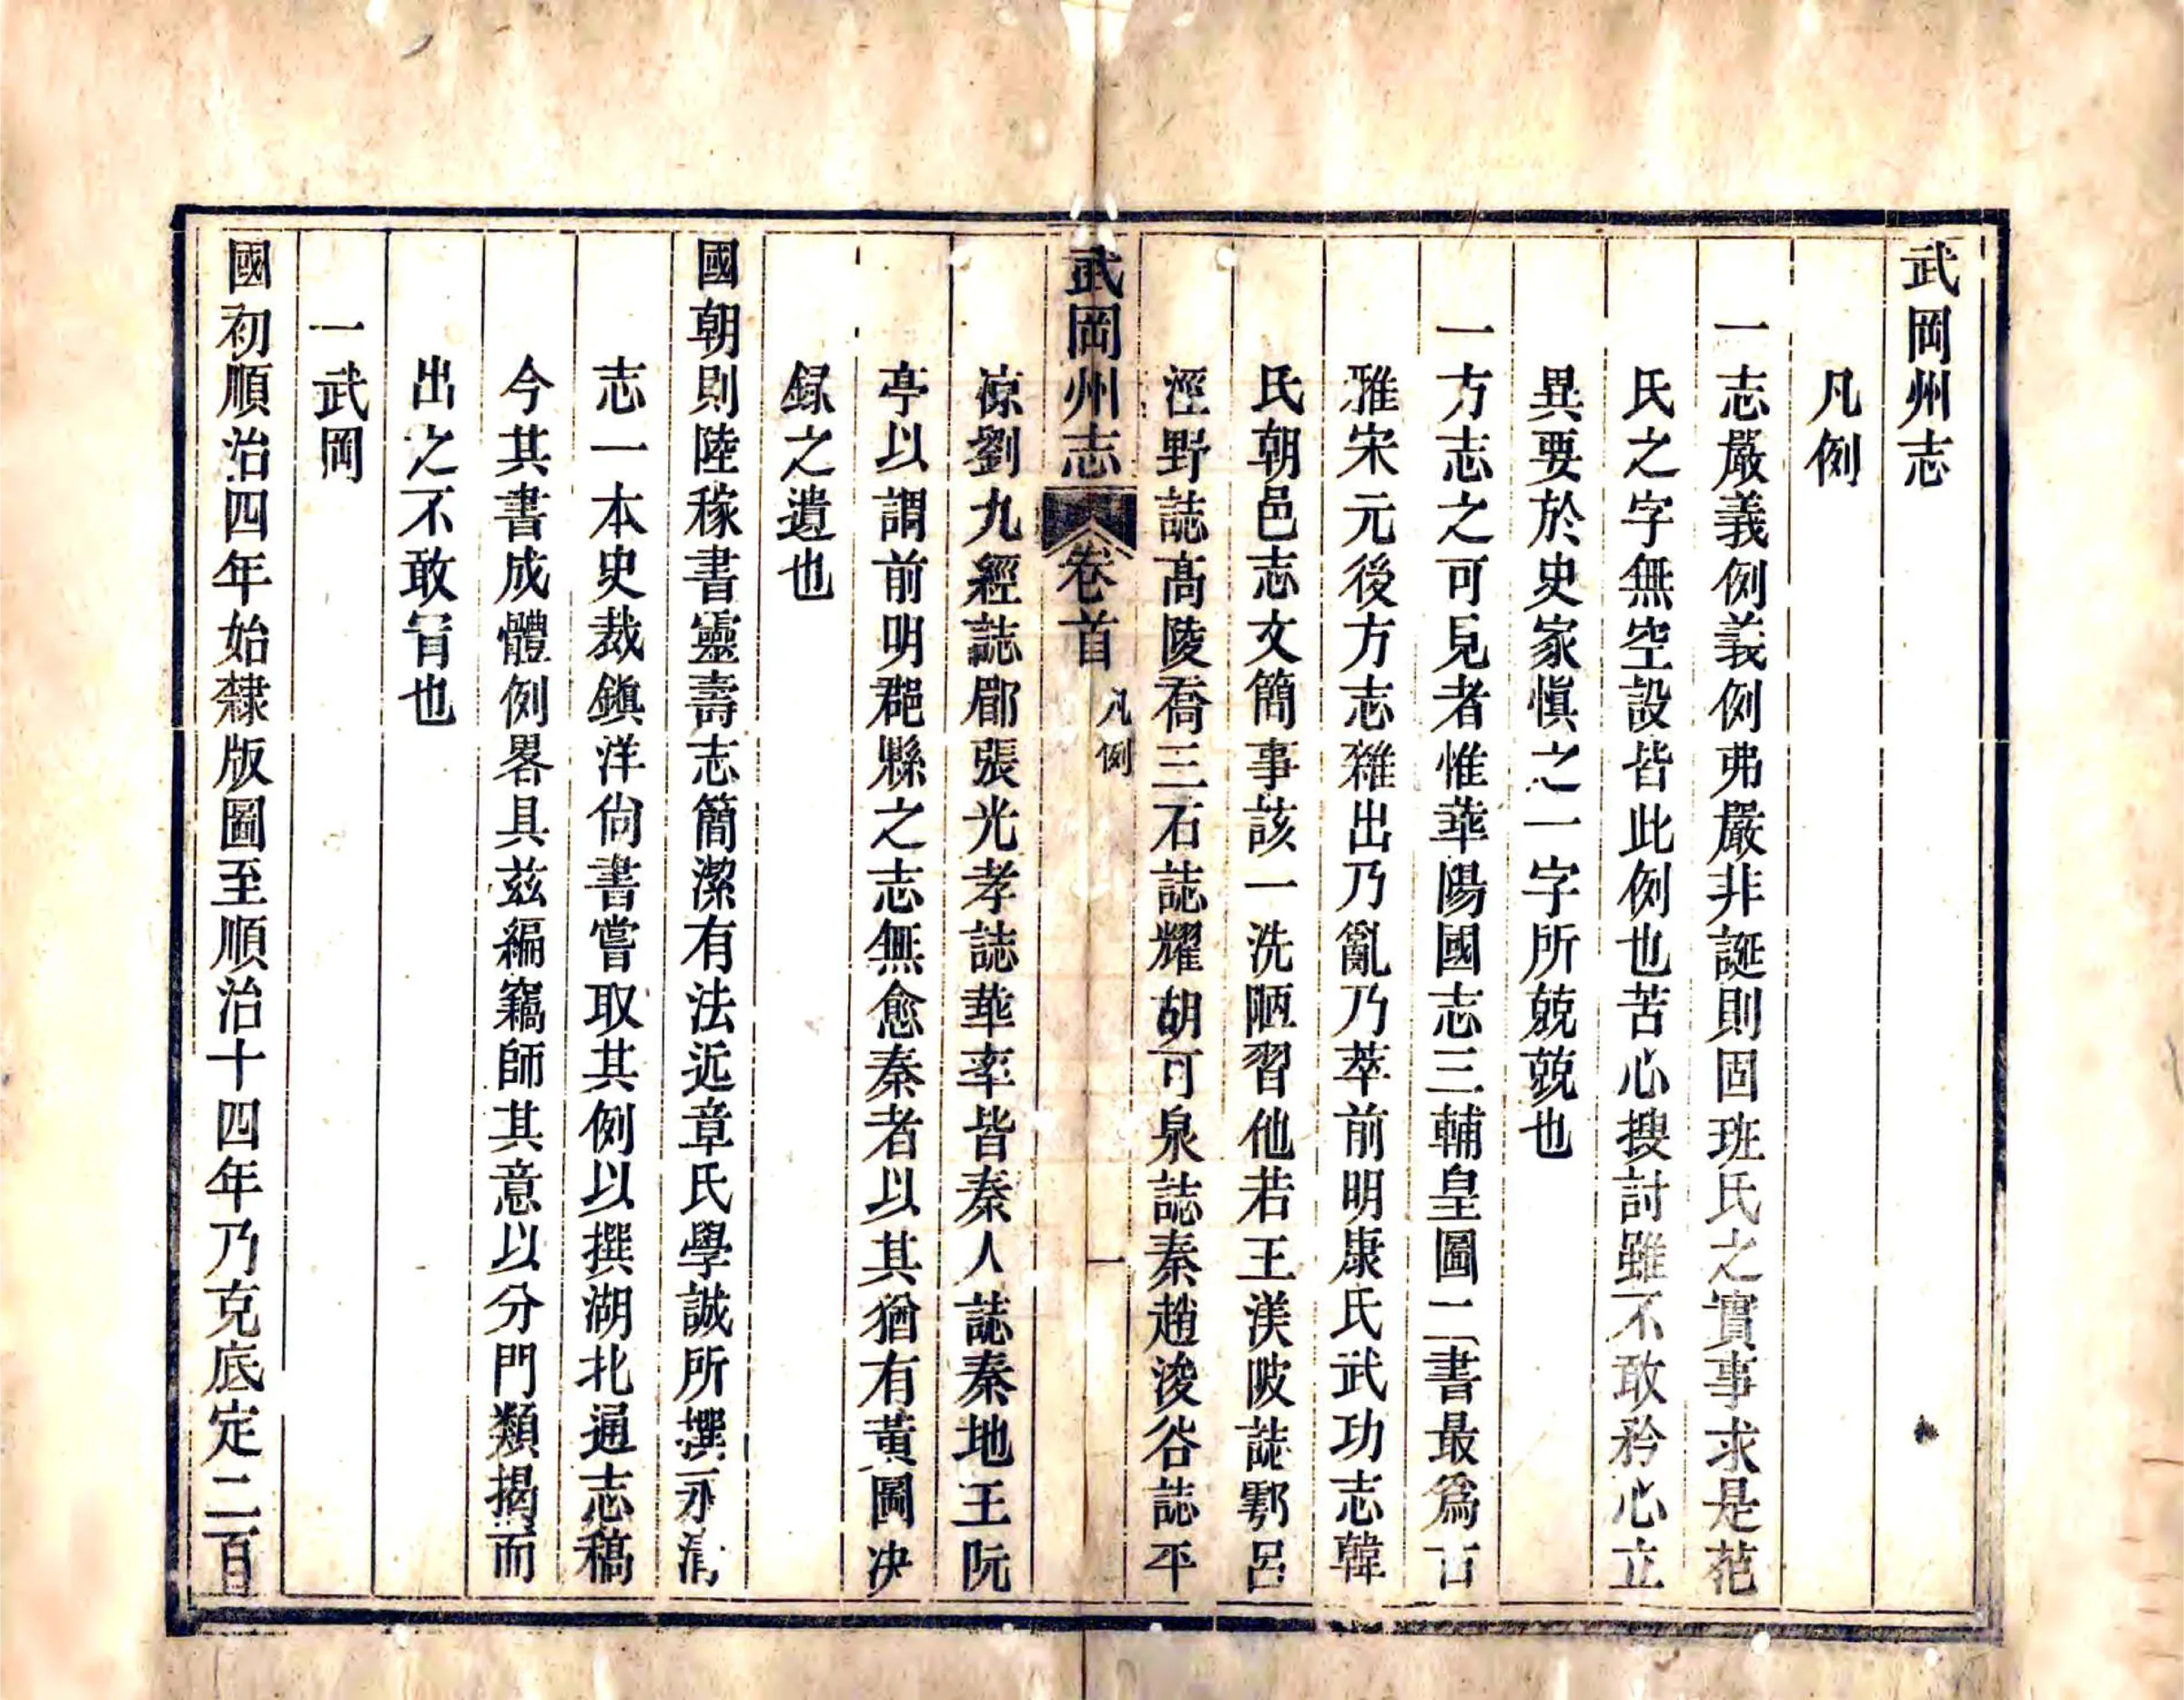 武岡州志
凡例
一志嚴義例義例弗嚴非誕則固班氏之實事求是范
氏之字無空設皆此例也苦心搜討雖不敢矜心立
異要於史家愼之一字所兢兢也
一方志之可見者惟華陽國志三輔皇圖二書最爲古
雅宋元後方志雜出乃亂乃萃前明康氏武功志韓
氏朝邑志文簡事該一洗陋習他若王渼陂誌鄠呂
涇野誌高陵喬三石誌耀胡可泉誌秦趙浚谷誌平
武岡州志 卷首 凡例 一
涼劉九經誌郿張光孝誌華率皆秦人誌秦地王阮
亭以謂前明郡縣之志無愈秦者以其猶有黃圖决
録之遺也
國朝則陸稼書靈壽志簡潔有法近章氏學誠所撰永清
志一本史裁鎮洋尙書嘗取其例以撰湖北通志稿
今其書成體例畧具兹編竊師其意以分門類揭而
出之不敢冐也
一武岡
國初順治四年始隸版圖至順治十四年乃克底定二百